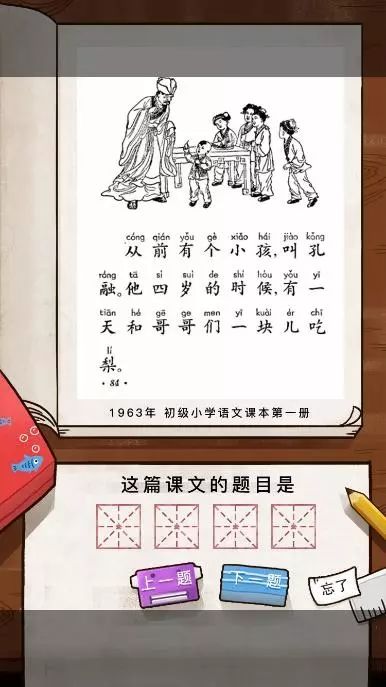 cóng qián yǒu gè xiǎo hái, jiào kǒng
从前有个小孩,叫孔
róng tā sì suì de shí hòu yǒu yī
融。他四岁的时候,有一
tiān hé gē ge men yī kuài ér chī
天和哥哥们一块儿吃
lí
梨。
· 84 ·
1963年 初级小学语文课本第一册
这篇课文的题目是
上一题
下一题
忘了